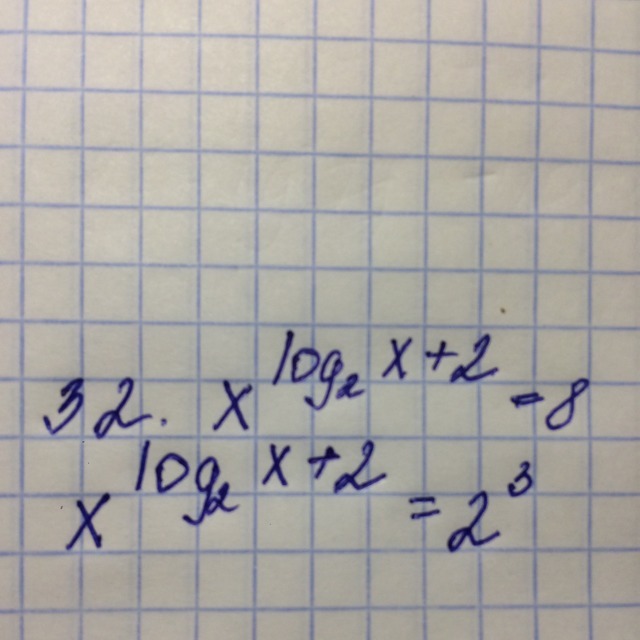 32. x^{log_2 x+2} = 8
x^{log_2 x+2} = 2^3